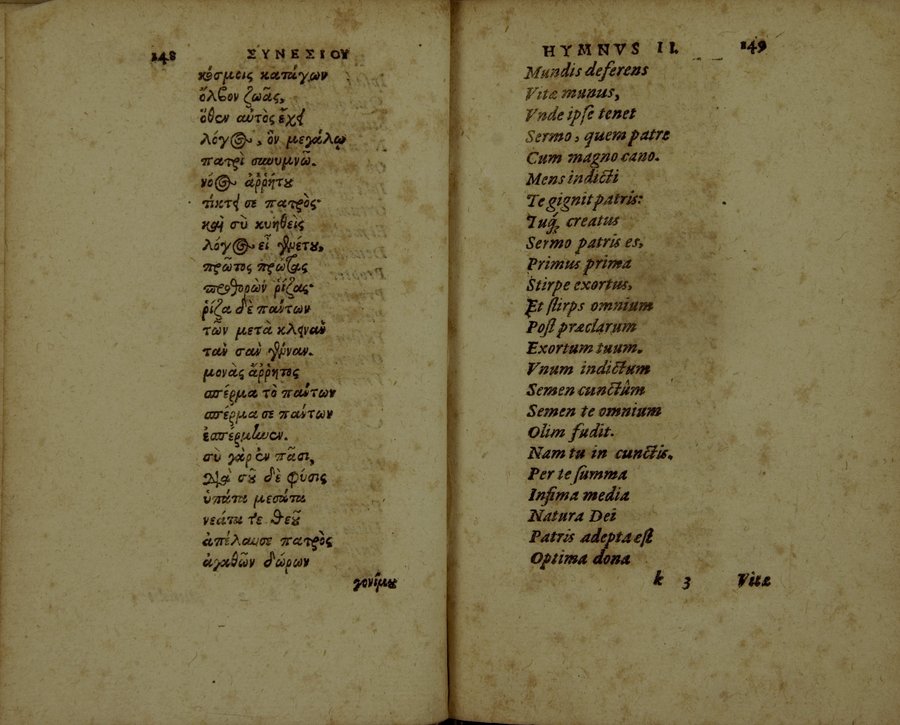 148 ΣΥΝΕΣΙΟΥ
κόσμεις κατάγων
ὄλβον ζωᾶς,
ὅθεν αὐτὸς ἔχει
λόγος, ὃν μεγάλῳ
πατρὶ συνυμνῶ.
νόος ἀῤῥήτου
τίκτει σε πατρὸς·
καὶ σὺ κυηθεὶς
λόγος εἶ γενέτου,
πρῶτος πρώτας
προθορὼν ῥίζας·
ῥίζα δὲ πάντων
τῶν μετὰ κλεινὰν
τὰν σὰν γένναν.
μονὰς ἄῤῥητος
σπέρμα τὸ πάντων
σπέρμα σε πάντων
ἐσπέρμηνεν.
σὺ γὰρ ἐν πᾶσι,
διὰ σοῦ δὲ φύσις
ὑπάτα μεσάτα
νεάτα τε θεοῦ
ἀπέλαυσε πατρὸς
ἀγαθῶν δώρων
γονίμου
HYMNVS II. 149
Mundis deferens
Vitæ munus,
Vnde ipse tenet
Sermo, quem patre
Cum magno cano.
Mens indicti
Te gignit patris:
Tuq́; creatus
Sermo patris es,
Primus prima
Stirpe exortus,
Et stirps omnium
Post præclarum
Exortum tuum.
Vnum indictum
Semen cunctûm
Semen te omnium
Olim fudit.
Nam tu in cunctis.
Per te summa
Infima media
Natura Dei
Patris adepta est
Optima dona
k 3 Vitæ